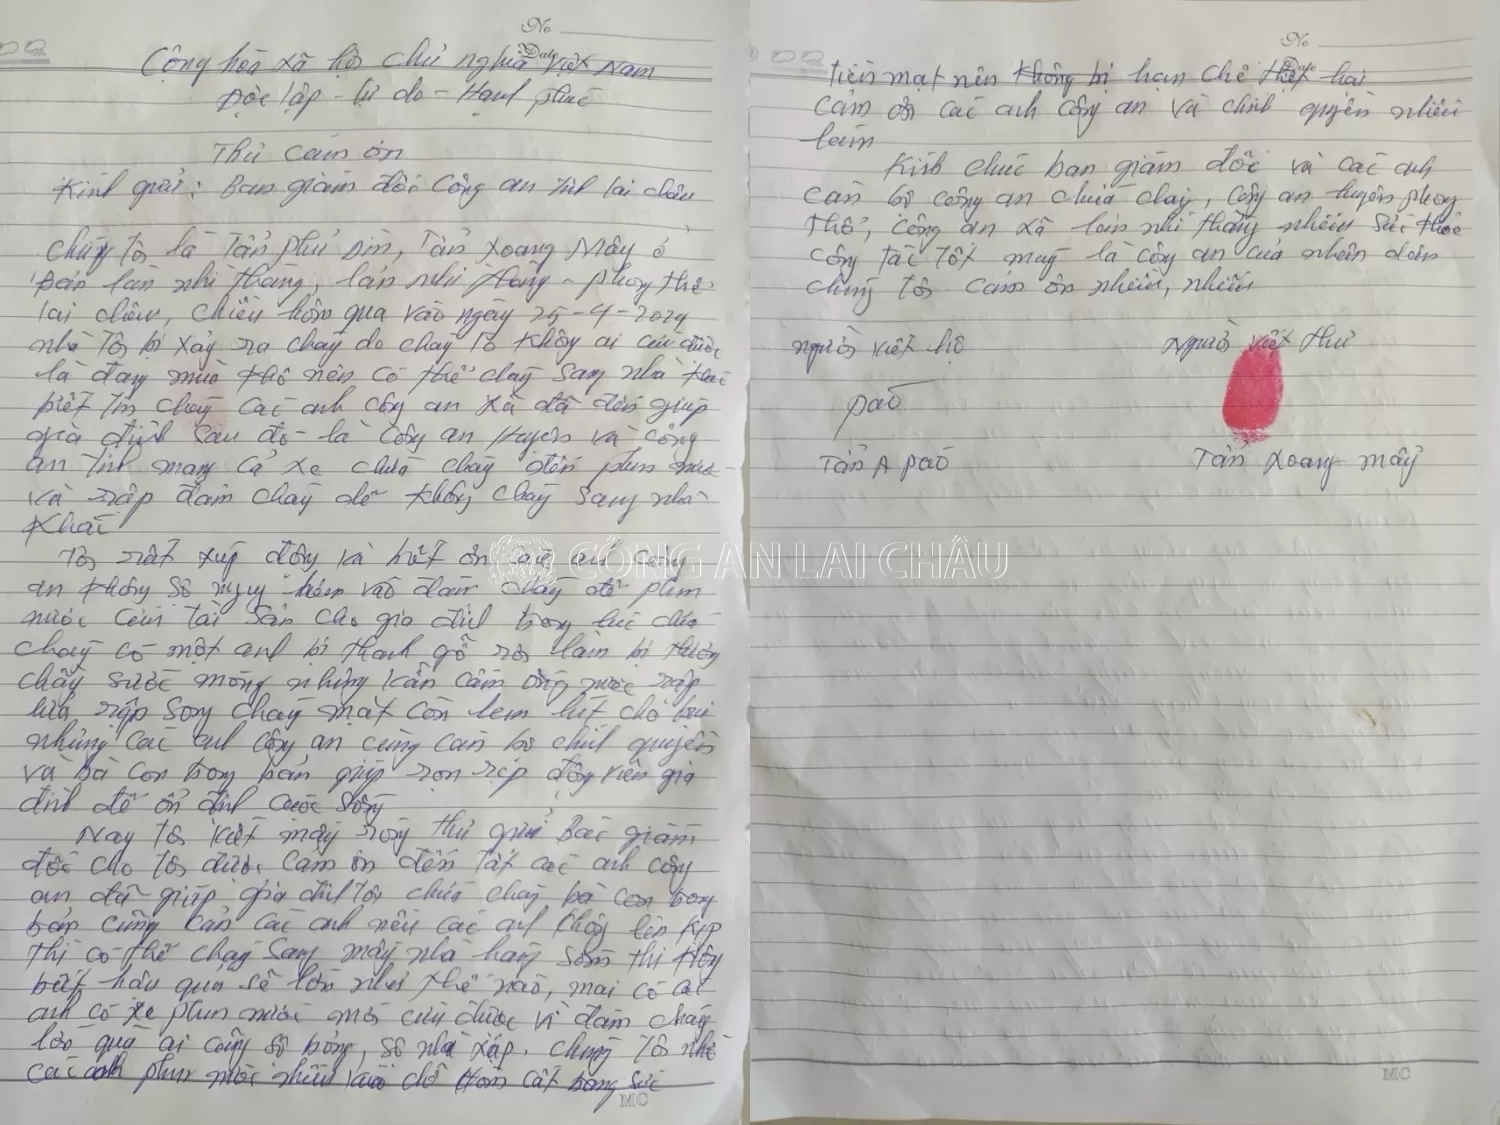 No
Date
Cộng hòa xã hội chủ nghĩa Việt Nam
Độc lập - tự do - Hạnh phúc
Thư cám ơn
Kính gửi: Ban giám đốc công an tỉnh lai châu
Chúng tôi là Tẩn Phủ Dìn, Tẩn Xoang Mẩy ở
Bản làn nhì thàng, làn nhì thàng - phong thổ
lai châu, chiều hôm qua vào ngày 25-4-2024
nhà tôi bị xảy ra cháy do cháy to không ai cứu được
là đang mùa khô nên có thể cháy sang nhà khác
biết tin cháy các anh công an xã đã đến giúp
gia đình sau đó là công an Huyện và công
an tỉnh mang cả xe chữa cháy đến phun nước
và rập đám cháy để không cháy sang nhà
khác
Tôi rất xúp động và biết ơn các anh công
an không sợ nguy hiểm vào đám cháy để phun
nước cứu tài sản cho gia đình trong lúc chữa
cháy có một anh bị thanh gỗ rơi làm bị thương
chầy sước móng nhưng vẫn cầm ống nước rập
lửa rập song cháy mặt còn lem lút cho bụi
nhưng các anh công an cùng cán bộ chính quyền
và bà con trong bản giúp rọn rẹp động viên gia
đình để ổn định cuộc sống
Nay tôi viết mấy ròng thư gửi Bác giám
đốc cho tôi được cám ơn đến tất các anh công
an đã giúp gia đình tôi chữa cháy bà con trong
bản cũng cản các anh nếu các anh không lên kịp
thì có thể cháy sang mấy nhà hàng sóm thì không
biết hậu quả sẽ lớn như thế nào, mai có các
anh có xe phun nước mới cứu được vì đám cháy
lớn quá ai cũng sợ bỏng, sợ nhà xập. chúng tôi nhờ
các anh phun nước nhiều vào chỗ Hòm cất trong
No
Date
tiền mặt nên không bị hạn chế
cảm ơn các anh công an và chính quyền nhiều
lắm
Kính chúc ban giám đốc và các anh
cán bộ công an chữa cháy, công an huyện phong
thổ, công an xã làn nhì thàng nhiều sức khỏe
công tác tốt mãi là công an của nhân dân
chúng tôi cám ơn nhiều, nhiều
người viết hộ
Người viết thư
pao
Tẩn A pao
Tẩn Xoang mẩy
CÔNG AN LAI CHÂU
MC
MC